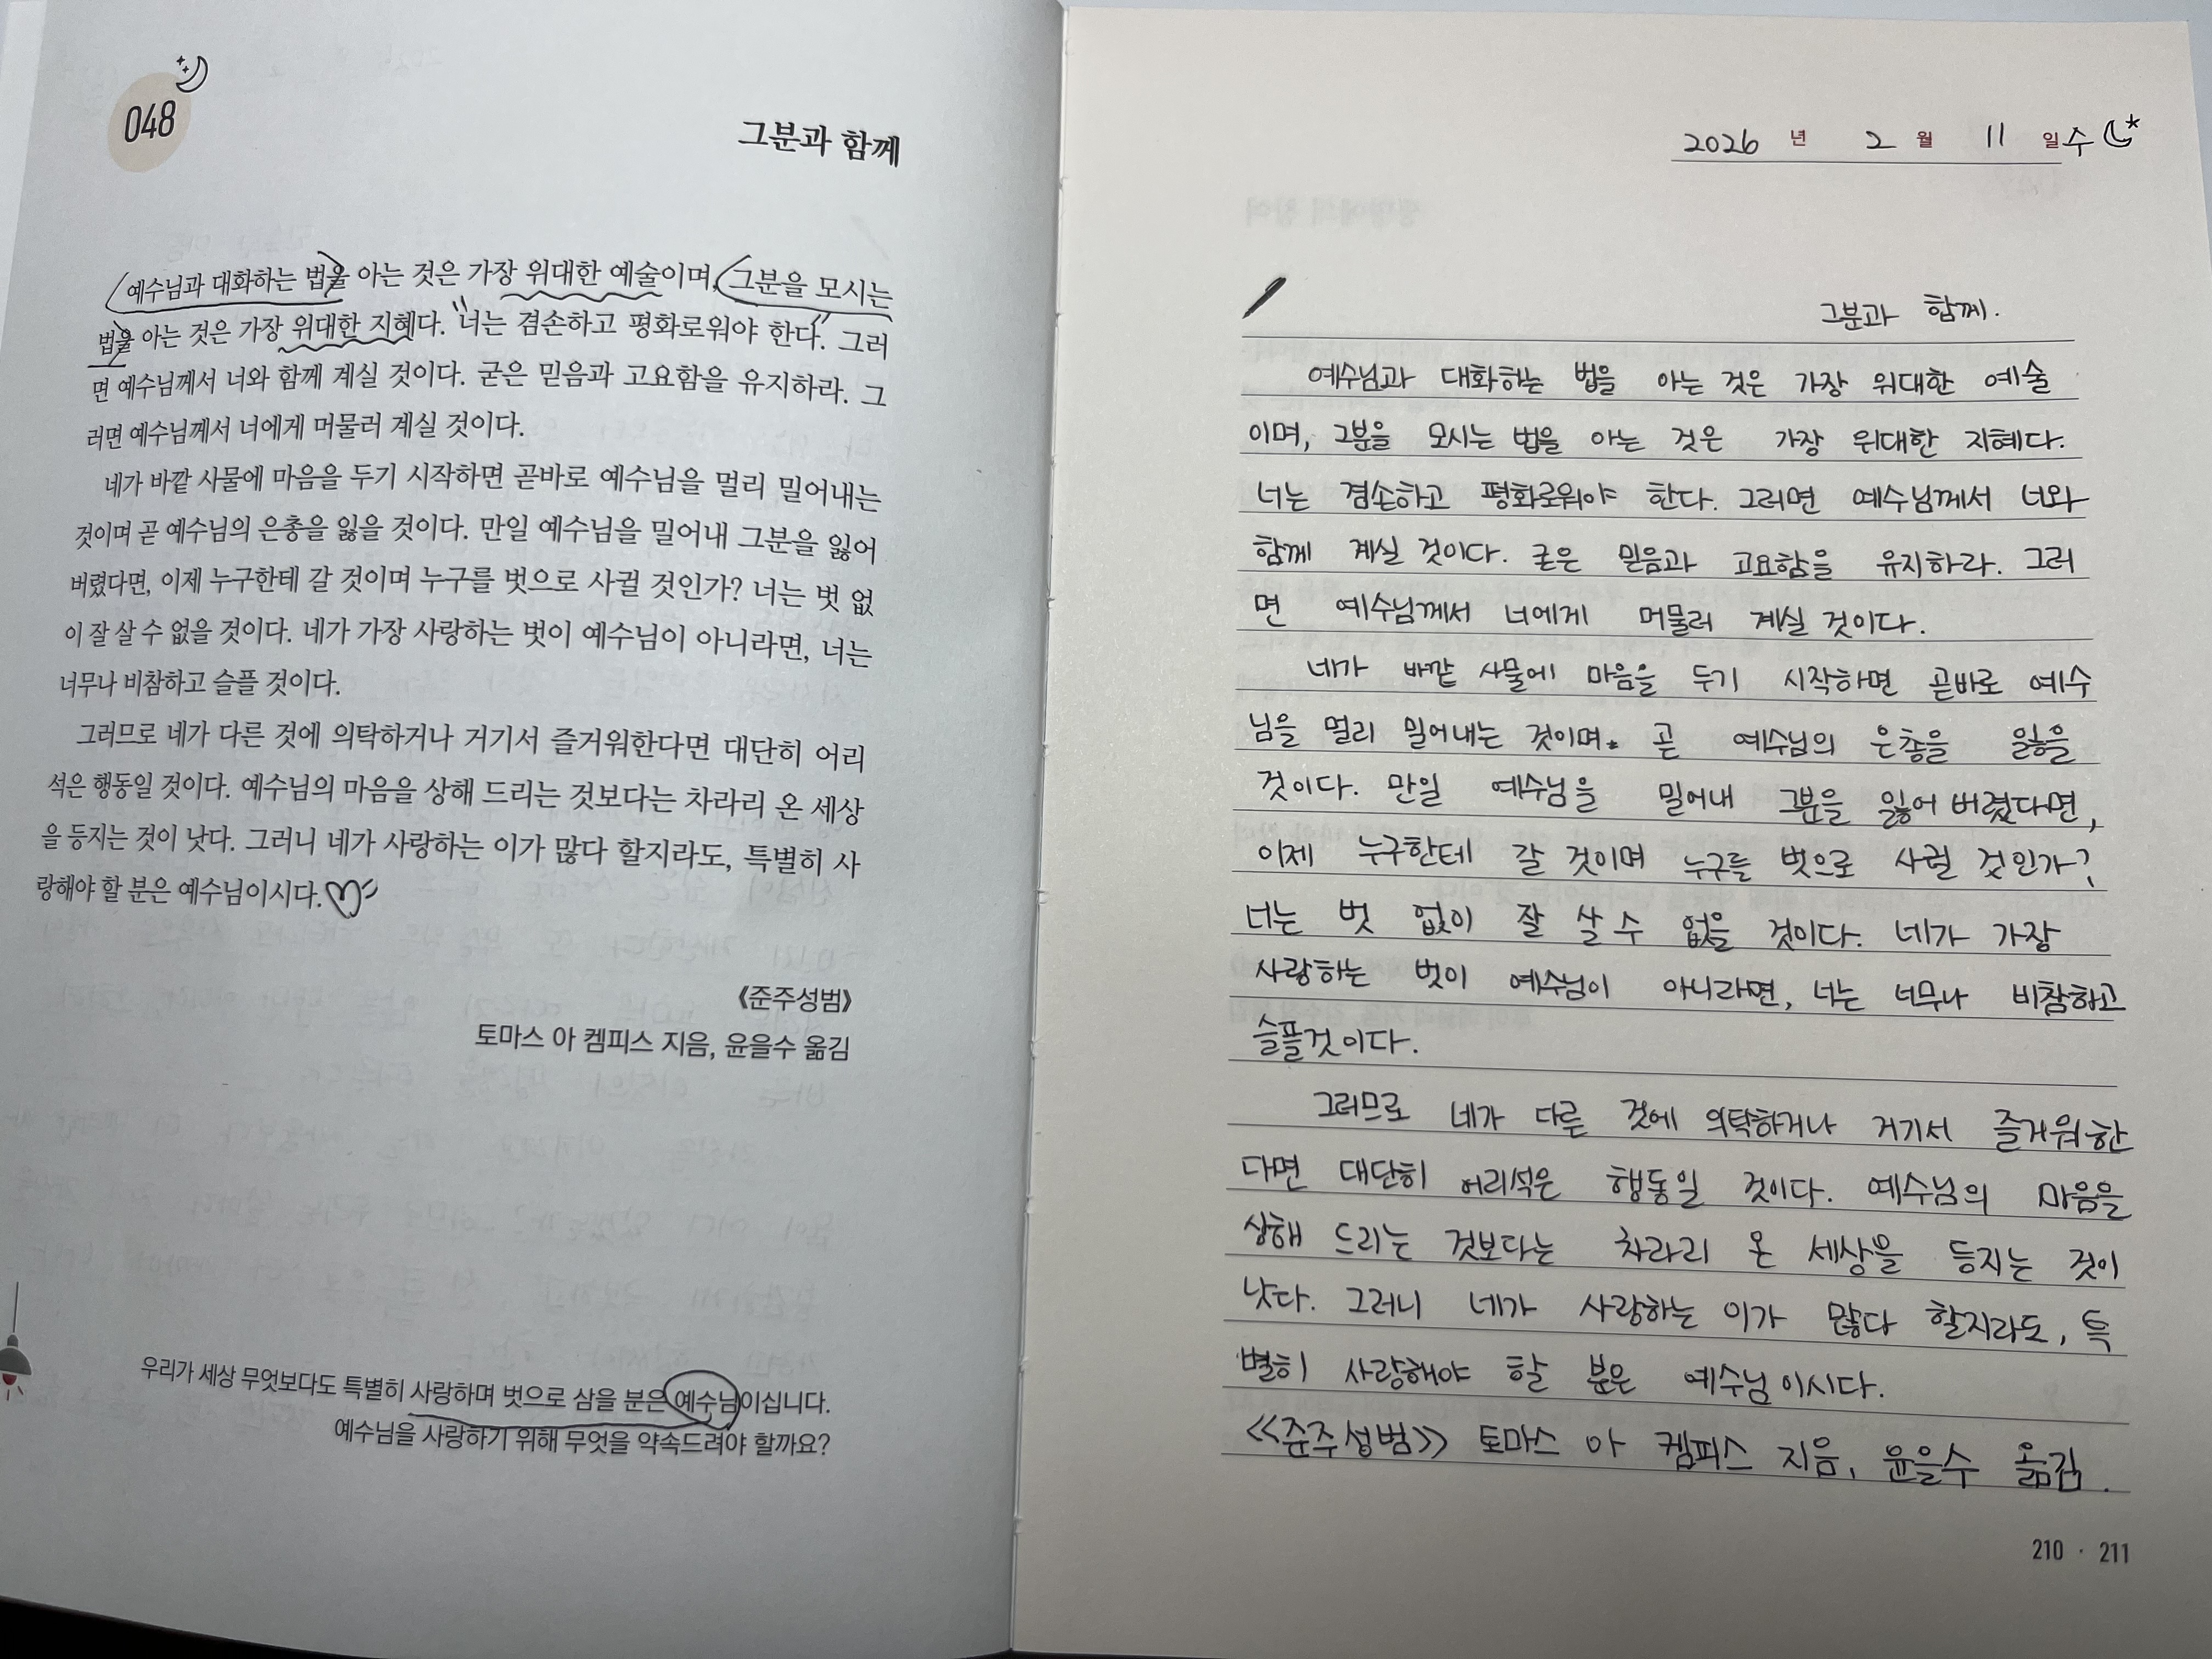 048
그분과 함께
예수님과 대화하는 법을 아는 것은 가장 위대한 예술이며, 그분을 모시는
법을 아는 것은 가장 위대한 지혜다. 너는 겸손하고 평화로워야 한다. 그러
면 예수님께서 너와 함께 계실 것이다. 굳은 믿음과 고요함을 유지하라. 그
러면 예수님께서 너에게 머물러 계실 것이다.
네가 바깥 사물에 마음을 두기 시작하면 곧바로 예수님을 멀리 밀어내는
것이며 곧 예수님의 은총을 잃을 것이다. 만일 예수님을 밀어내 그분을 잃어
버렸다면, 이제 누구한테 갈 것이며 누구를 벗으로 사귈 것인가? 너는 벗 없
이 잘 살 수 없을 것이다. 네가 가장 사랑하는 벗이 예수님이 아니라면, 너는
너무나 비참하고 슬플 것이다.
그러므로 네가 다른 것에 의탁하거나 거기서 즐거워한다면 대단히 어리
석은 행동일 것이다. 예수님의 마음을 상해 드리는 것보다는 차라리 온 세상
을 등지는 것이 낫다. 그러니 네가 사랑하는 이가 많다 할지라도, 특별히 사
랑해야 할 분은 예수님이시다.
《준주성범》
토마스 아 켐피스 지음, 윤을수 옮김
우리가 세상 무엇보다도 특별히 사랑하며 벗으로 삼을 분은 예수님이십니다.
예수님을 사랑하기 위해 무엇을 약속드려야 할까요?
2026 년 2 월 11 일 수
그분과 함께.
예수님과 대화하는 법을 아는 것은 가장 위대한 예술
이며, 그분을 모시는 법을 아는 것은 가장 위대한 지혜다.
너는 겸손하고 평화로워야 한다. 그러면 예수님께서 너와
함께 계실 것이다. 굳은 믿음과 고요함을 유지하라. 그러
면 예수님께서 너에게 머물러 계실 것이다.
네가 바깥 사물에 마음을 두기 시작하면 곧바로 예수
님을 멀리 밀어내는 것이며. 곧 예수님의 은총을 잃을
것이다. 만일 예수님을 밀어내 그분을 잃어 버렸다면,
이제 누구한테 갈 것이며 누구를 벗으로 사귈 것인가?
너는 벗 없이 잘 살 수 없을 것이다. 네가 가장
사랑하는 벗이 예수님이 아니라면, 너는 너무나 비참하고
슬플것이다.
그러므로 네가 다른 것에 의탁하거나 거기서 즐거워한
다면 대단히 어리석은 행동일 것이다. 예수님의 마음을
상해 드리는 것보다는 차라리 온 세상을 등지는 것이
낫다. 그러니 네가 사랑하는 이가 많다 할지라도, 특
별히 사랑해야 할 분은 예수님이시다.
<<준주성범>> 토마스 아 켐피스 지음, 윤을수 옮김.
210 · 211